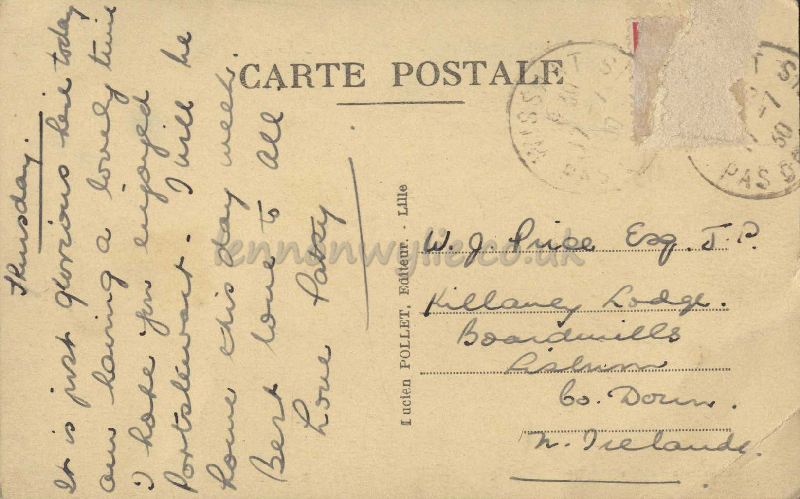 CARTE POSTALE
Thursday.
It is just glorious here today
am having a lovely time
I hope you enjoyed
Portstewart. I will be
home this day week.
Best love to all.
Love Patsy
Lucien POLLET, Editeur. - Lille
W. J. Price Esq. J.P.
Killaney Lodge.
Boardmills
Lisburn
Co. Down.
N. Ireland.
WISSANT
PAS DE
30
lennonwylie.co.uk